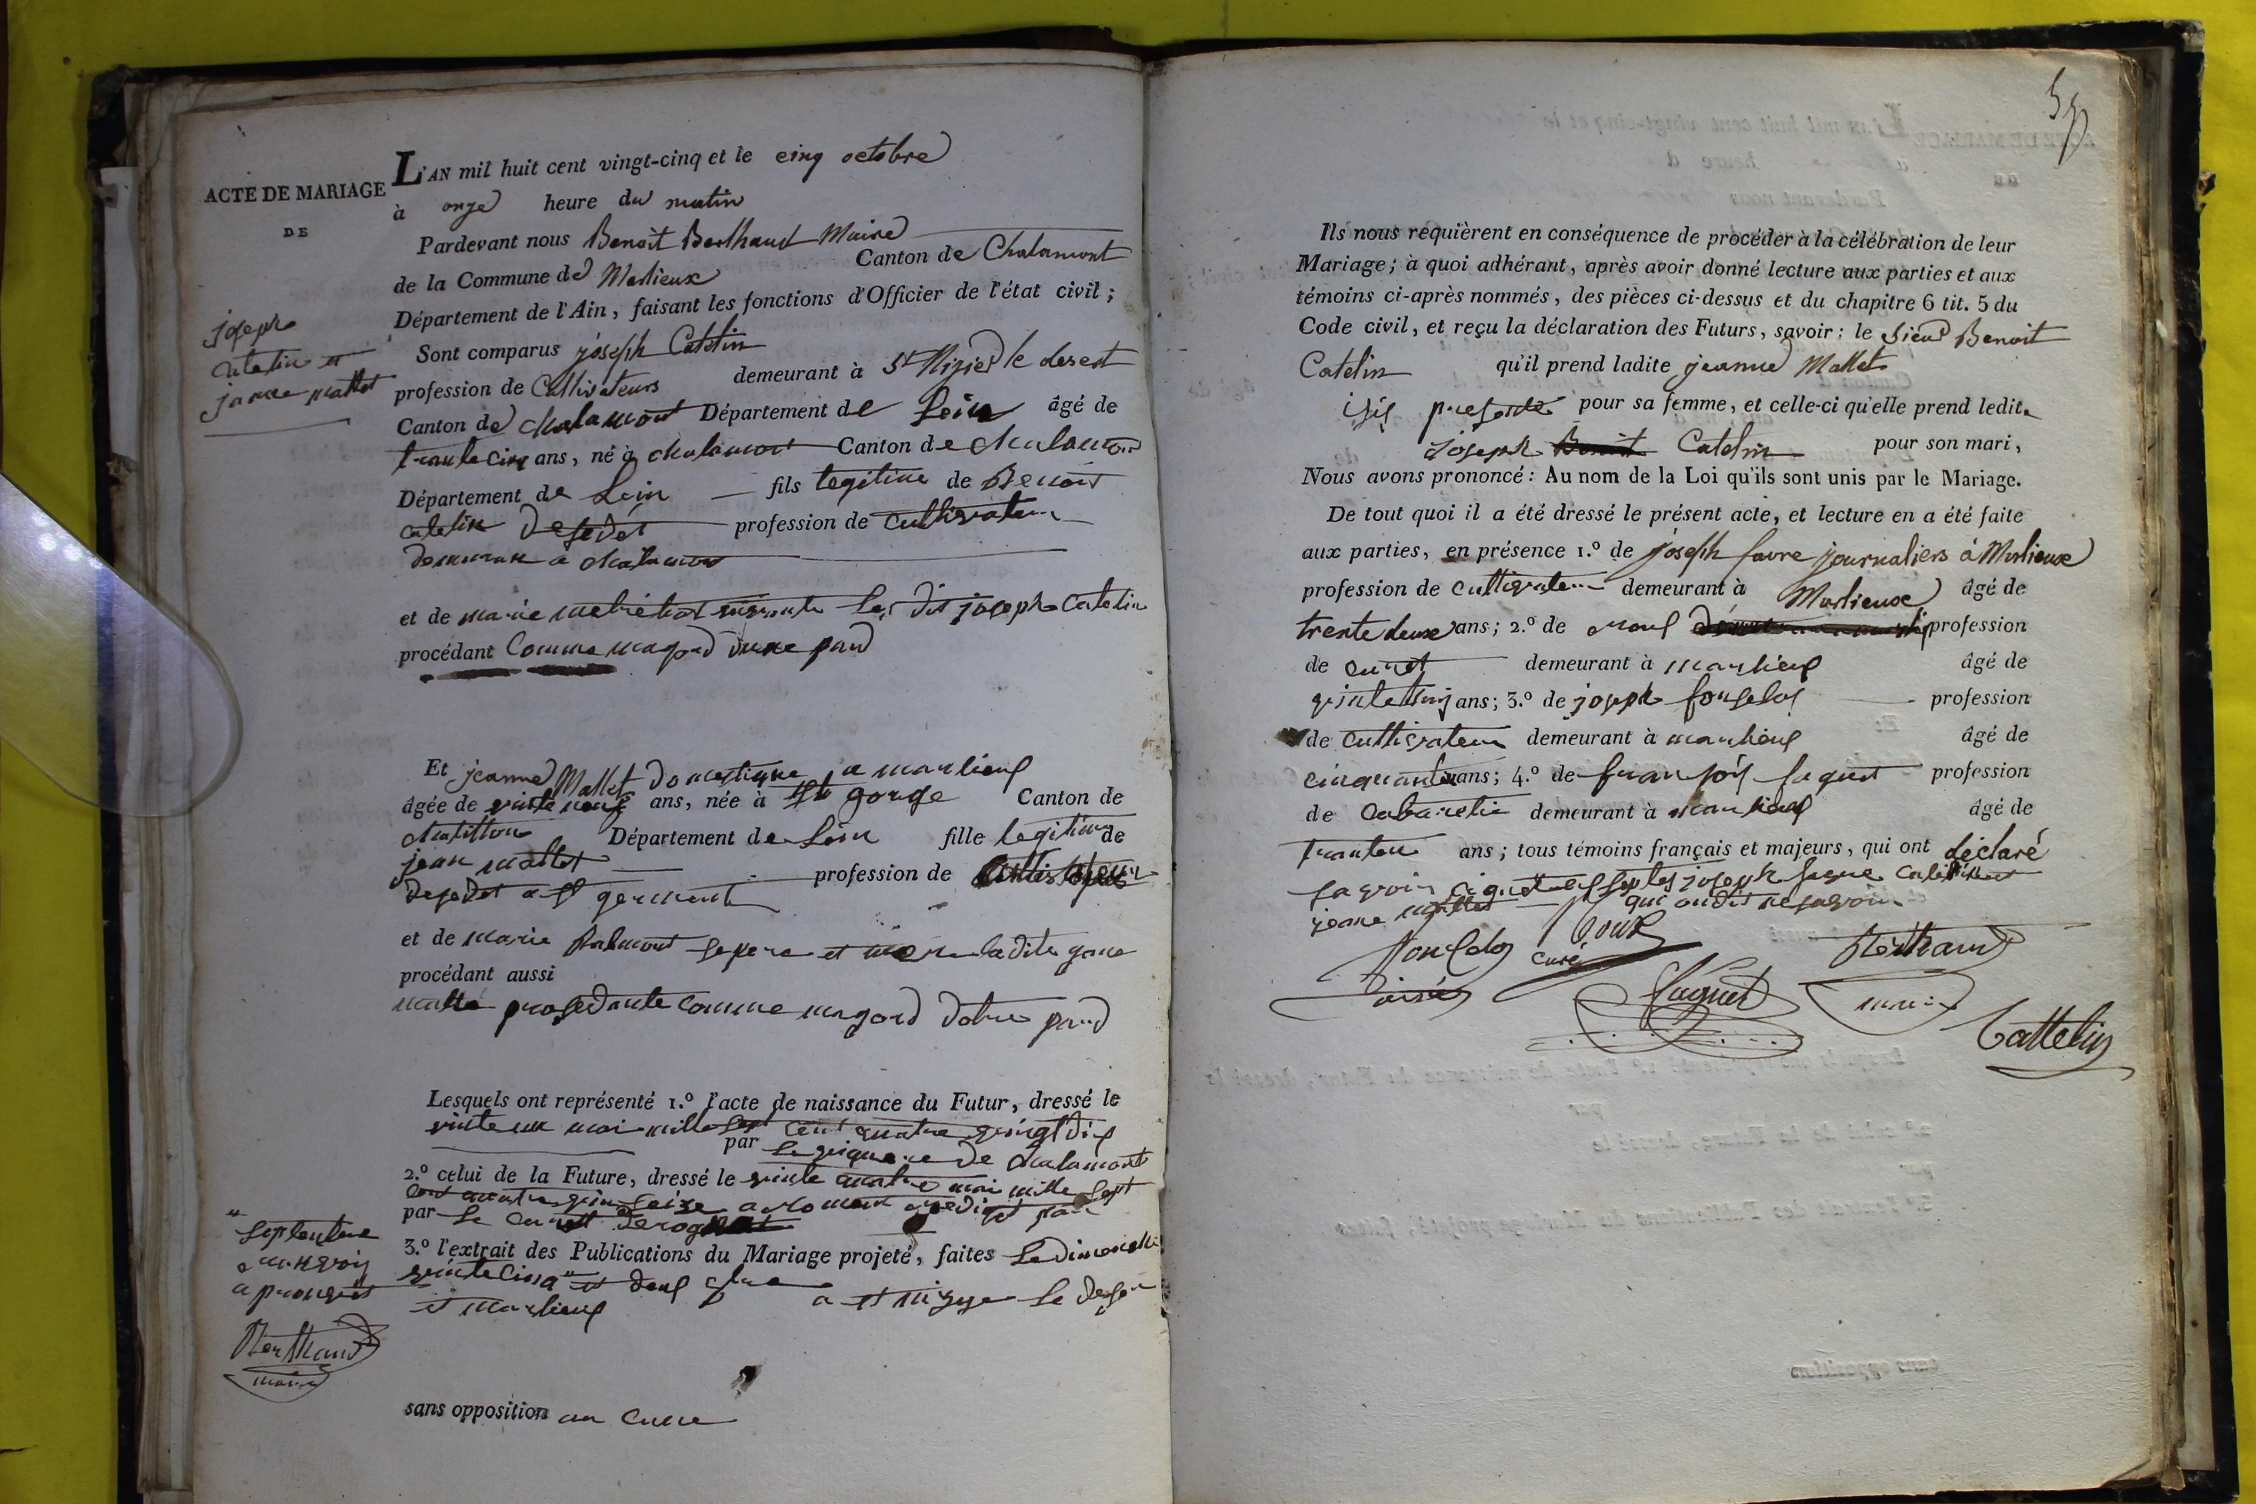 ACTE DE MARIAGE
DE
joseph
catelin et
janne mallet
L'AN mil huit cent vingt-cinq et le cinq octobre
à onze heure du matin
Pardevant nous Benoît Berthaud Maire
de la Commune de Marlieux Canton de Chalamont
Département de l'Ain, faisant les fonctions d'Officier de l'état civil;
Sont comparus joseph Catelin
profession de Cultivateurs demeurant à St Nizier le desert
Canton de chalamont Département de Lein âgé de
trante cinq ans, né à chalamont Canton de chalamon
Département de Lein fils legitime de Benoit
catelin desedet profession de cultivateur
demeuran a chalamon
et de marie vivante Les dit joseph catelin
procédant Comme magord dune pard
Et jeanne Mallet domestique a marlieux
âgée de vinte neuf ans, née à St gorge Canton de
chatillon Département de Lein fille legitime de
jean mallet profession de cultivateur
desedet a st germent
et de marie sepere et mere ladite jane
procédant aussi
mallet prosedante comme magord dotre pard
Lesquels ont représenté 1.° l'acte de naissance du Futur, dressé le
vinte un mai mille sept cent quatre vingt dix
par de chalamont
2.° celui de la Future, dressé le vinte quatre mai mille sept
cent quatre vin seize a
par Le
3.° l'extrait des Publications du Mariage projeté, faites Le dimenche
vinte cinq " et deux a st nizye Le deser
et marlieux
" septembre
aprouvet
Berthaud
maire
sans opposition
59
Ils nous requièrent en conséquence de procéder à la célébration de leur
Mariage; à quoi adhérant, après avoir donné lecture aux parties et aux
témoins ci-après nommés, des pièces ci-dessus et du chapitre 6 tit. 5 du
Code civil, et reçu la déclaration des Futurs, savoir: le sieur Benoit
Catelin qu'il prend ladite jeanne Mallet
isis presente pour sa femme, et celle-ci qu'elle prend ledit
joseph Benoit Catelin pour son mari,
Nous avons prononcé: Au nom de la Loi qu'ils sont unis par le Mariage.
De tout quoi il a été dressé le présent acte, et lecture en a été faite
aux parties, en présence 1.° de joseph favre journaliers à Marlieux
profession de cultivateur demeurant à Marlieux âgé de
trente deux ans; 2.° de profession
de curet demeurant à marlieux âgé de
ans; 3.° de joseph fonselos profession
de cultivateur demeurant à marlieux âgé de
cinquante ans; 4.° de fransois faquet profession
de cabaretie demeurant à marlieux âgé de
trante ans; tous témoins français et majeurs, qui ont déclaré
savoir joseph catelin
jeane mallet qui ondit nesavoir
fonselos
ainé
curé
faquet
Berthaud
maire
Cattelin